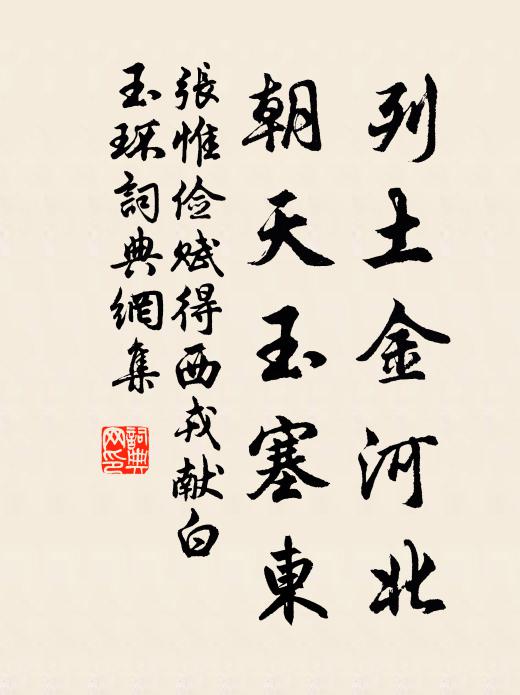 列土金河北
朝天玉塞東
張惟俭赋得西戎献白
玉环詞典網集
詞典
网印